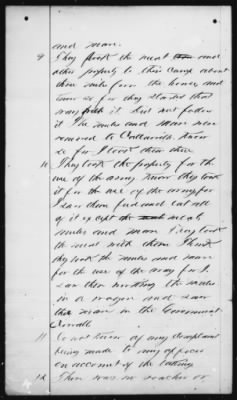 and mare.
9 They took the meat and
other property to their camp about
three miles from the house and
was so for they started that
way I did not follow
it The mules and mare were
removed to
so for I took them there
10 They took the property for the
use of the army. I know they took
it for the use of the army for
I saw them feed and eat all
of it except the meal
mules and mare They took
the meat with them I think
they took the mules and mare
for the use of the army for I
saw them working the mules
in a wagon and saw
the mare in the Government
Corrall
11 I do not know of any complaint
being made to any officer
on account of the taking
12 There was no voucher or